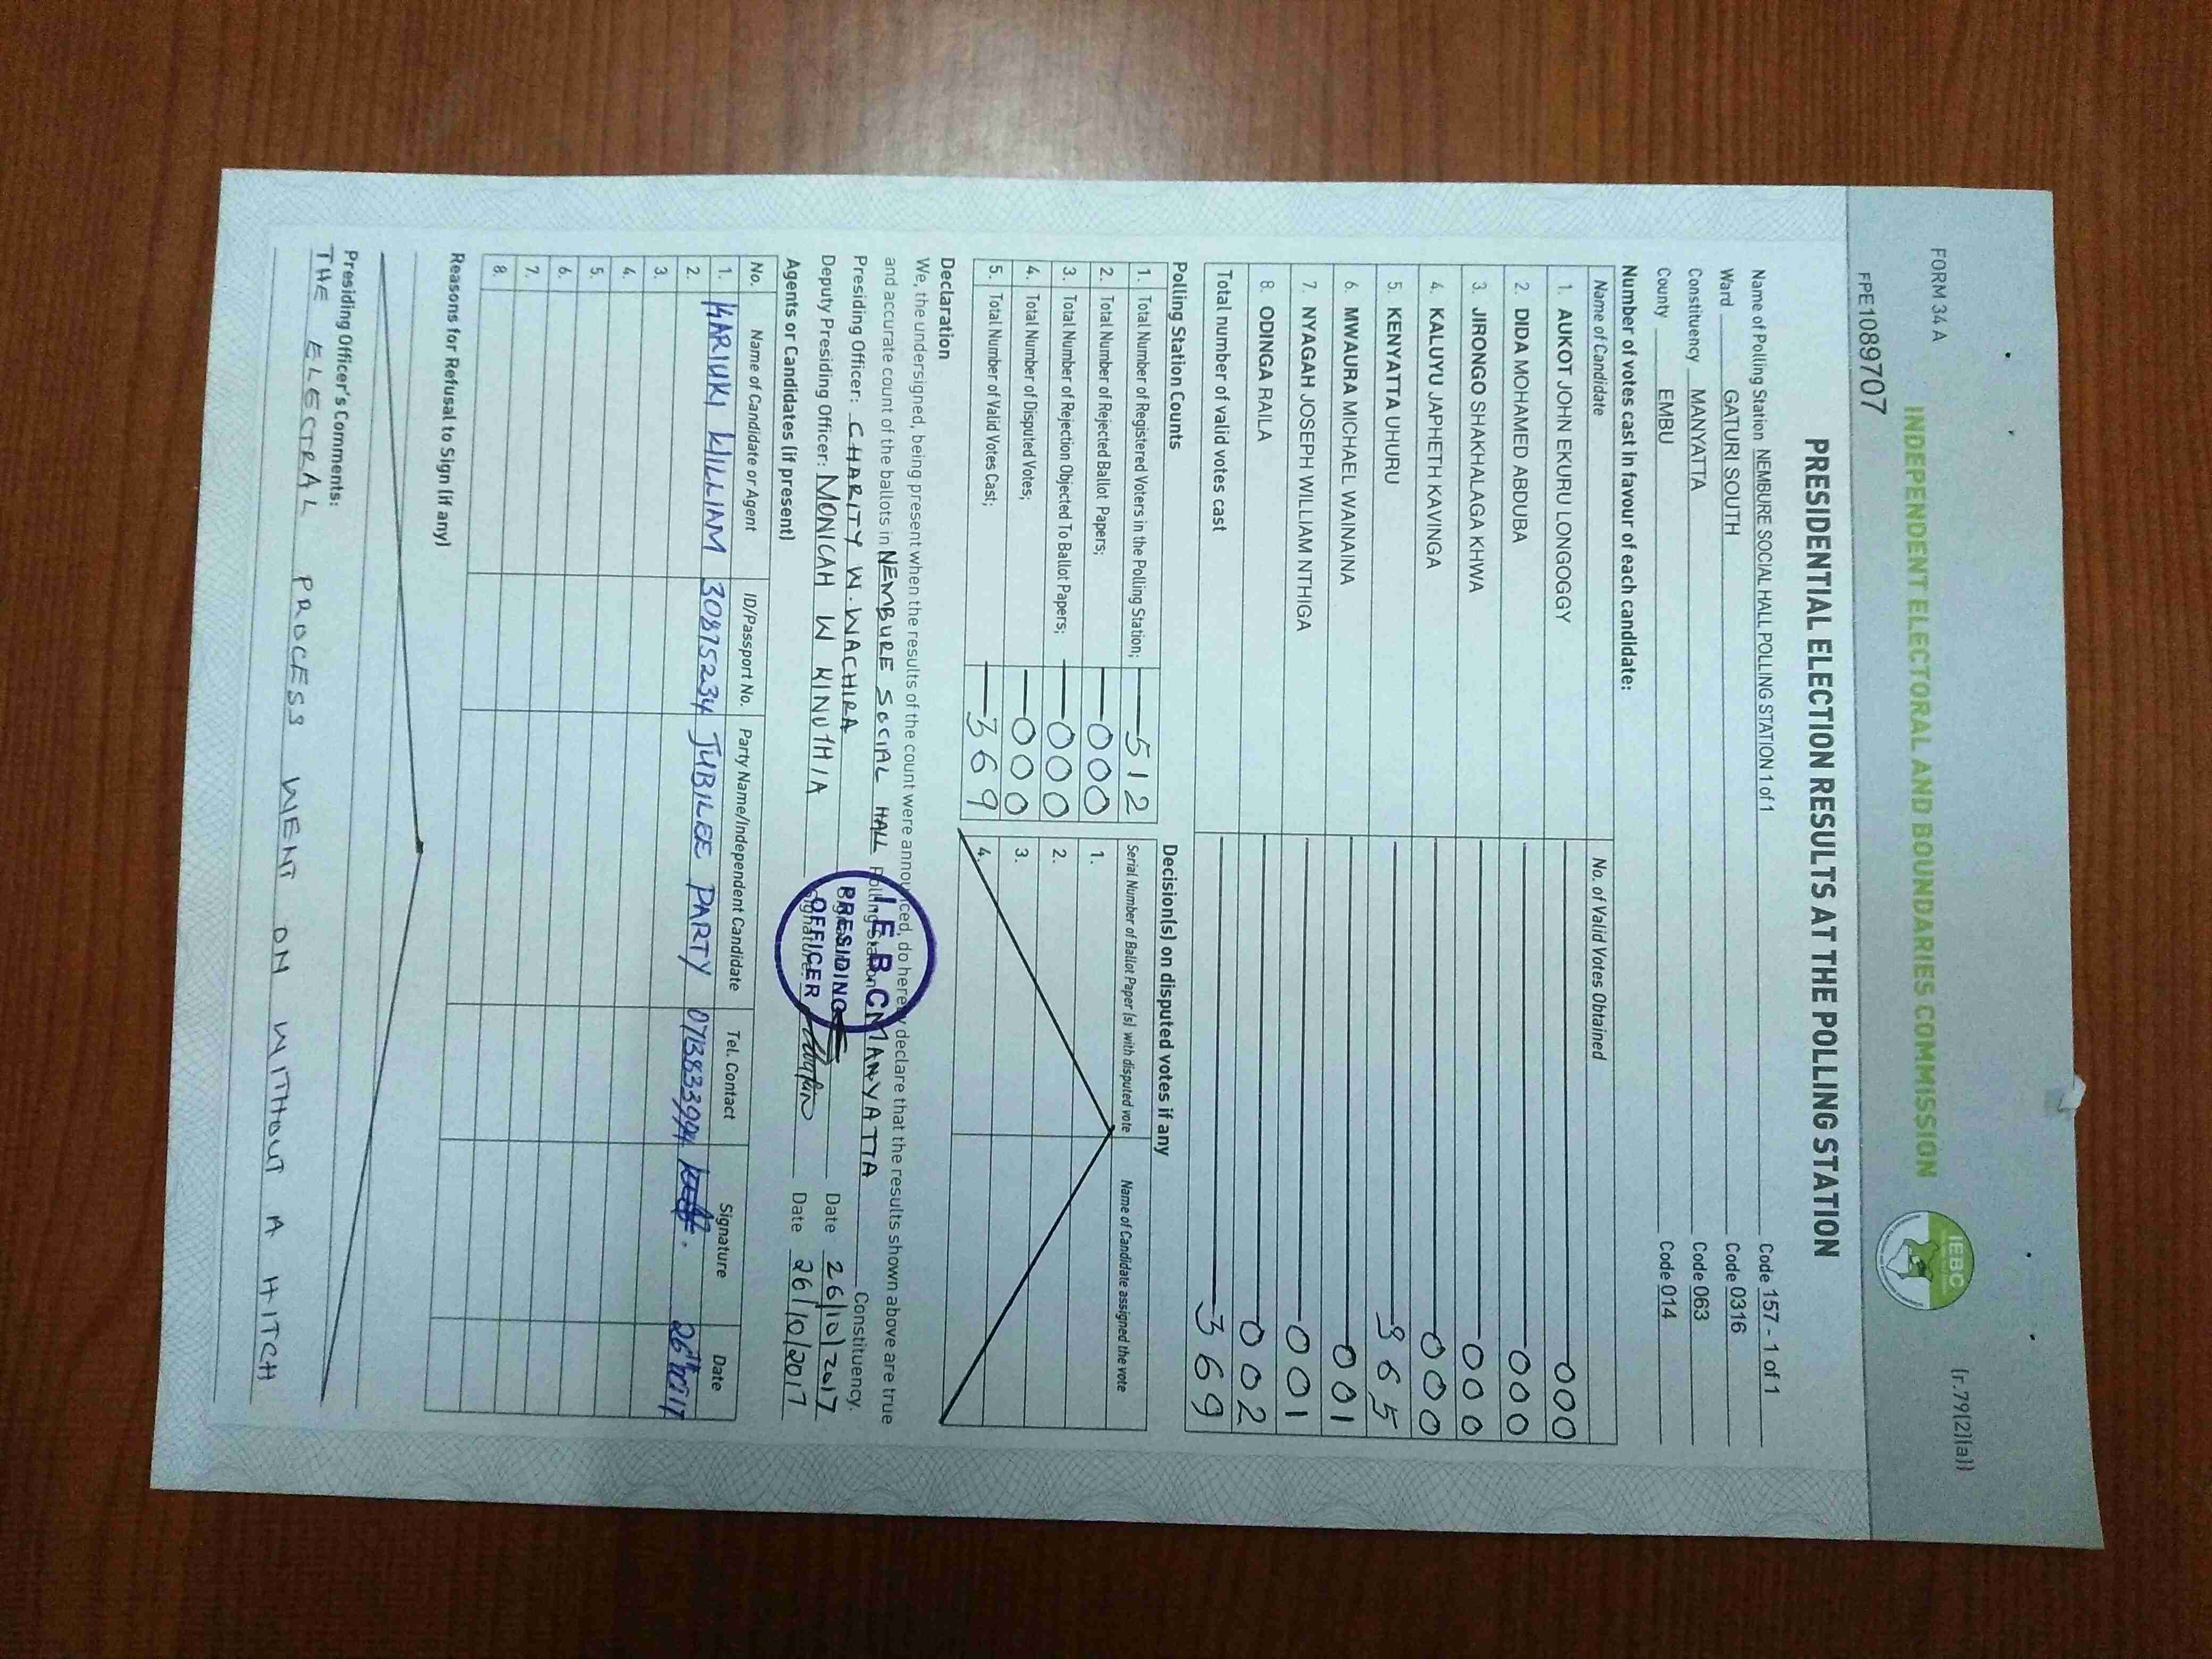 FORM 34 A
(r.79(2)(a))
INDEPENDENT ELECTORAL AND BOUNDARIES COMMISSION
IEBC
FPE1089707
PRESIDENTIAL ELECTION RESULTS AT THE POLLING STATION
Name of Polling Station NEMBURE SOCIAL HALL POLLING STATION 1 of 1 Code 157 - 1 of 1
Ward GATURI SOUTH Code 0316
Constituency MANYATTA Code 063
County EMBU Code 014
Number of votes cast in favour of each candidate:
Name of Candidate No. of Valid Votes Obtained
1. AUKOT JOHN EKURU LONGOGGY 000
2. DIDA MOHAMED ABDUBA 000
3. JIRONGO SHAKHALAGA KHWA 000
4. KALUYU JAPHETH KAVINGA 000
5. KENYATTA UHURU 365
6. MWAURA MICHAEL WAINAINA 001
7. NYAGAH JOSEPH WILLIAM NTHIGA 001
8. ODINGA RAILA 002
Total number of valid votes cast 369
Polling Station Counts Decision(s) on disputed votes if any
1. Total Number of Registered Voters in the Polling Station; 512 Serial Number of Ballot Paper (s) with disputed vote Name of Candidate assigned the vote
2. Total Number of Rejected Ballot Papers; 000 1.
3. Total Number of Rejection Objected To Ballot Papers; 000 2.
4. Total Number of Disputed Votes; 000 3.
5. Total Number of Valid Votes Cast; 369 4.
Declaration
We, the undersigned, being present when the results of the count were announced, do hereby declare that the results shown above are true
and accurate count of the ballots in NEMBURE SOCIAL HALL Polling Station MANYATTA Constituency.
Presiding Officer: CHARITY W. WACHIRA Date 26/10/2017
Deputy Presiding Officer: MONICAH W KINUTHIA Signature: Date 26/10/2017
IEBC
PRESIDING
OFFICER
Agents or Candidates (if present)
No. Name of Candidate or Agent ID/Passport No. Party Name/Independent Candidate Tel. Contact Signature Date
1. KARIUKI WILLIAM 30875234 JUBILEE PARTY
2.
3.
4.
5.
6.
7.
8.
Reasons for Refusal to Sign (if any)
Presiding Officer's Comments:
THE ELECTRAL PROCESS WENT ON WITHOUT A HITCH